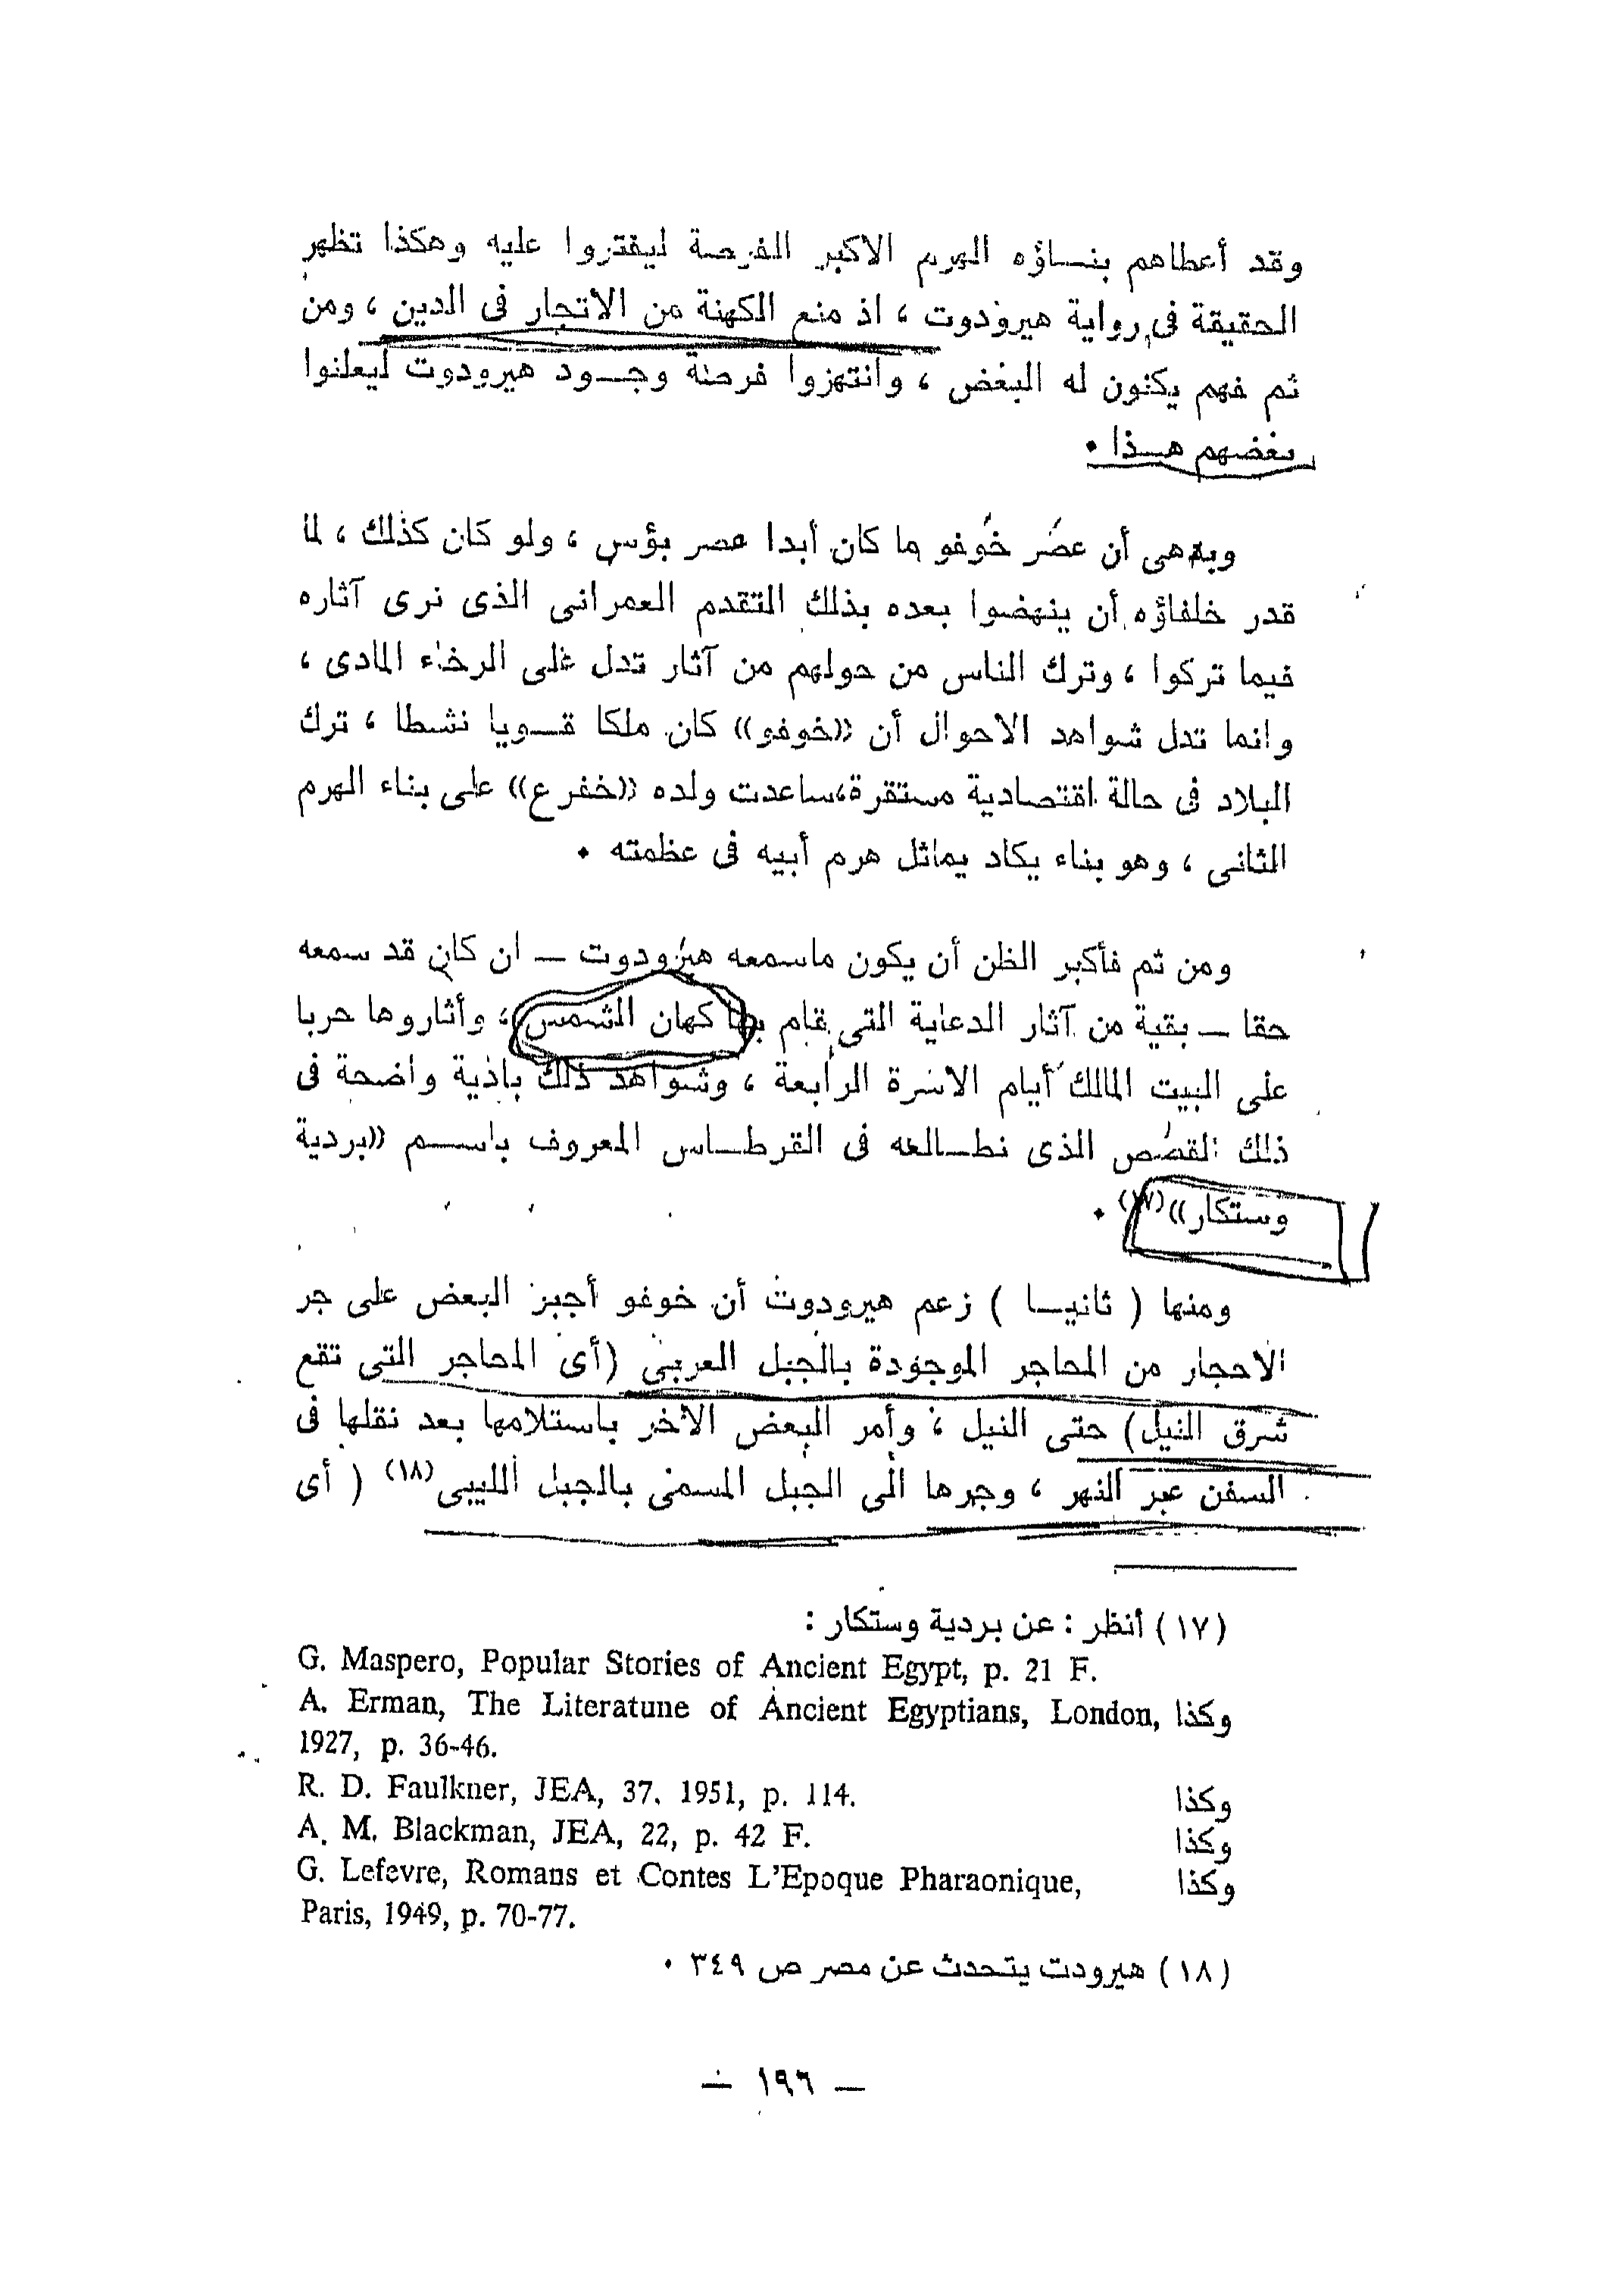 وقد أعطاهم بنــاؤه الهرم الاكبر الفرصة ليفتروا عليه وهكذا تظهر
الحقيقة فى رواية هيرودوت ، اذ منع الكهنة من الاتجار فى الدين ، ومن
ثم فهم يكنون له البغض ، وانتهزوا فرصة وجــود هيرودوت ليعلنوا
بغضهم هــذا ٠
وبدهى أن عصر خوفو ما كان أبدا عصر بؤس ، ولو كان كذلك ، لما
قدر خلفاؤه أن ينهضوا بعده بذلك التقدم العمرانى الذى نرى آثاره
فيما تركوا ، وترك الناس من حولهم من آثار تدل على الرخاء المادى ،
وانما تدل شواهد الاحوال أن «خوفو» كان ملكا قــويا نشطا ، ترك
البلاد فى حالة اقتصادية مستقرة،ساعدت ولده «خفرع» على بناء الهرم
الثانى ، وهو بناء يكاد يماثل هرم أبيه فى عظمته ٠
ومن ثم فأكبر الظن أن يكون ماسمعه هيرودوت — ان كان قد سمعه
حقا — بقية من آثار الدعاية التى قام بها كهان الشمس ، وأثاروها حربا
على البيت المالك أيام الاسرة الرابعة ، وشواهد ذلك باذية واضحة فى
ذلك القصص الذى نطــالعه فى القرطــاس المعروف باســم «بردية
وستكار»(١٧) ٠
ومنها ( ثانيــا ) زعم هيرودوت أن خوفو أجبر البعض على جر
الاحجار من المحاجر الموجودة بالجبل العربى (أى المحاجر التى تقع
شرق النيل) حتى النيل ، وأمر البعض الآخر باستلامها بعد نقلها فى
السفن عبر النهر ، وجرها الى الجبل المسمى بالجبل الليبى(١٨) ( أى
(١٧) أنظر : عن بردية وستكار :
G. Maspero, Popular Stories of Ancient Egypt, p. 21 F.
A. Erman, The Literatune of Ancient Egyptians, London, وكذا
1927, p. 36-46.
R. D. Faulkner, JEA, 37. 1951, p. 114. وكذا
A. M. Blackman, JEA, 22, p. 42 F. وكذا
G. Lefevre, Romans et Contes L'Epoque Pharaonique, وكذا
Paris, 1949, p. 70-77.
(١٨) هيرودت يتحدث عن مصر ص ٣٤٩ ٠
— ١٩٦ —